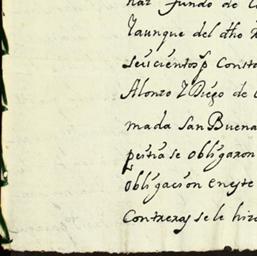 haz fundo de
Y aunque del dho
seiscientos ps Consta
Alonso Y Diego de
mada San Buena
pesria se obligaron
obligacion en este
Contreras se le hizo